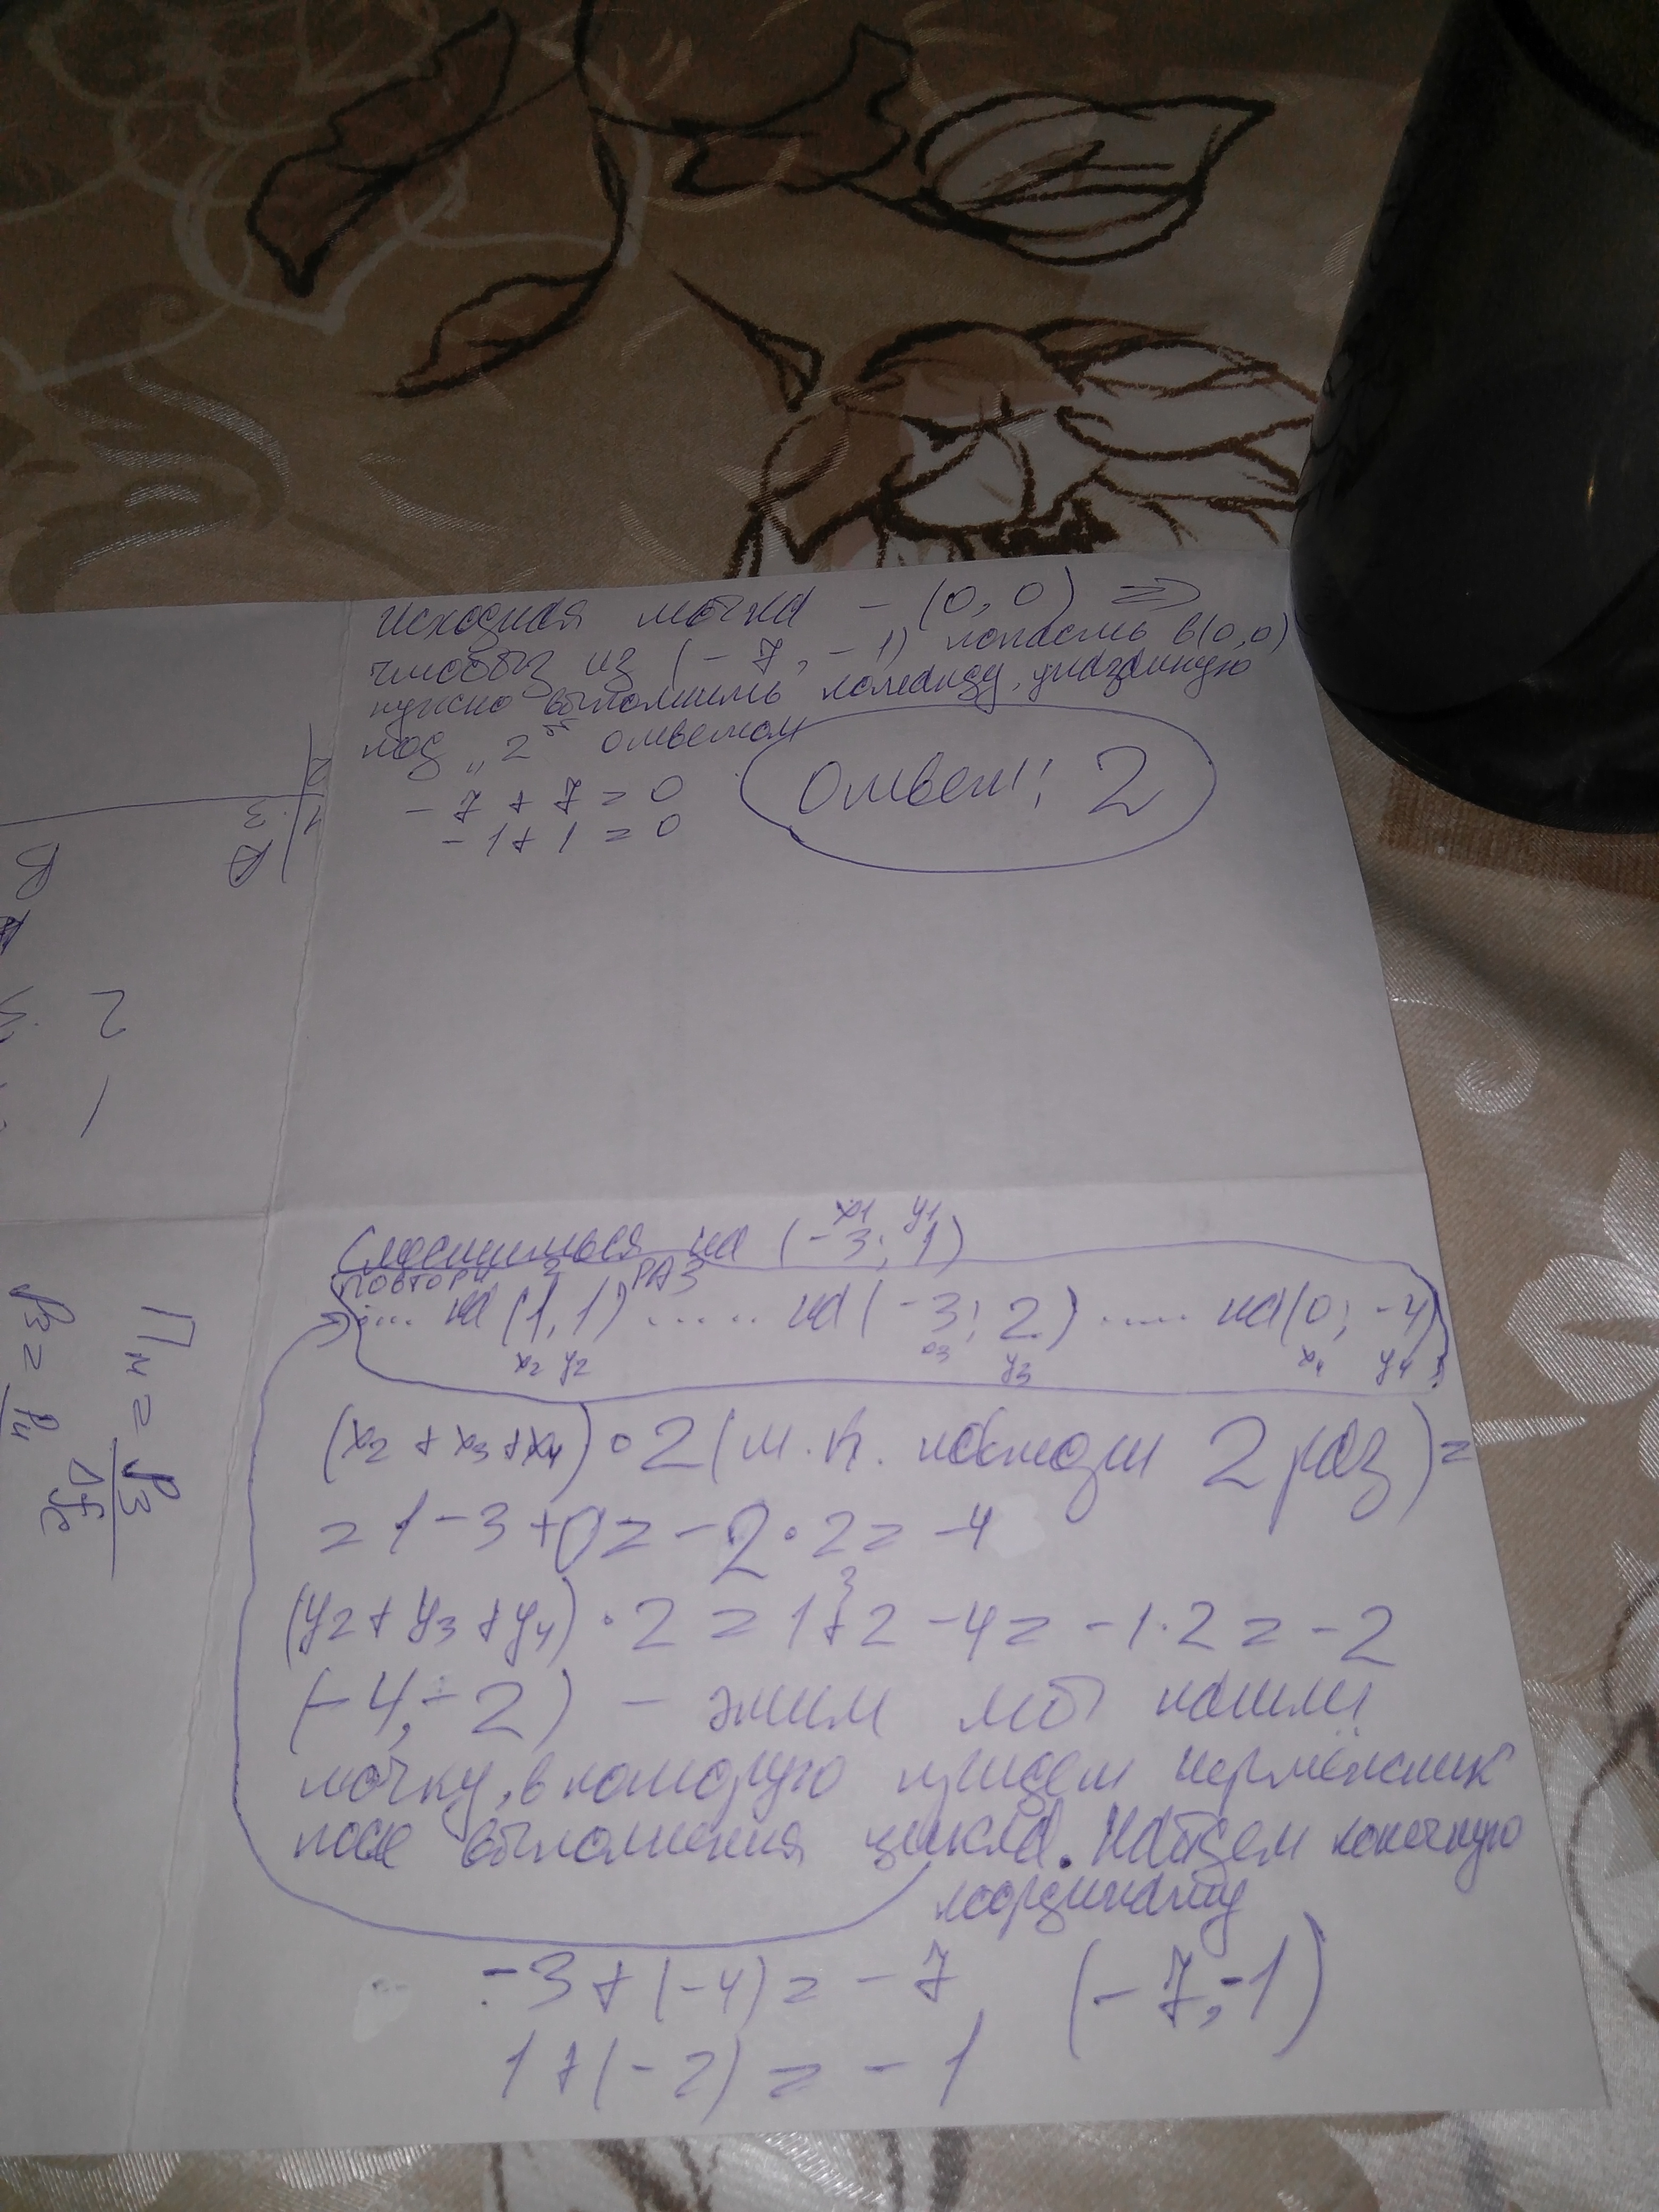 исходная точка - (0, 0) =>
чтобы из (-7, -1) попасть в (0,0)
нужно выполнить команду, указанную
под "2" ответом
-7 + 7 = 0
-1 + 1 = 0
Ответ: 2
x1 y1
Сместиться на (-3; 1)
ПОВТОРИ 2 РАЗ
.... на (1, 1) ...... на (-3; 2) ..... на (0; -4)
x2 y2 x3 y3 x4 y4
(x2 + x3 + x4) · 2 (т.к. повтори 2 раз) =
= 1 - 3 + 0 = -2 · 2 = -4
(y2 + y3 + y4) · 2 = 1 + 2 - 4 = -1 · 2 = -2
(-4, -2) - этим мы нашли
точку, в которую придет чертёжник
после выполнения цикла. Найдем конечную
координату
-3 + (-4) = -7
(-7, -1)
1 + (-2) = -1
2
1 3
A
B
2
1
Пч = P3 / Δfc
P3 = P4